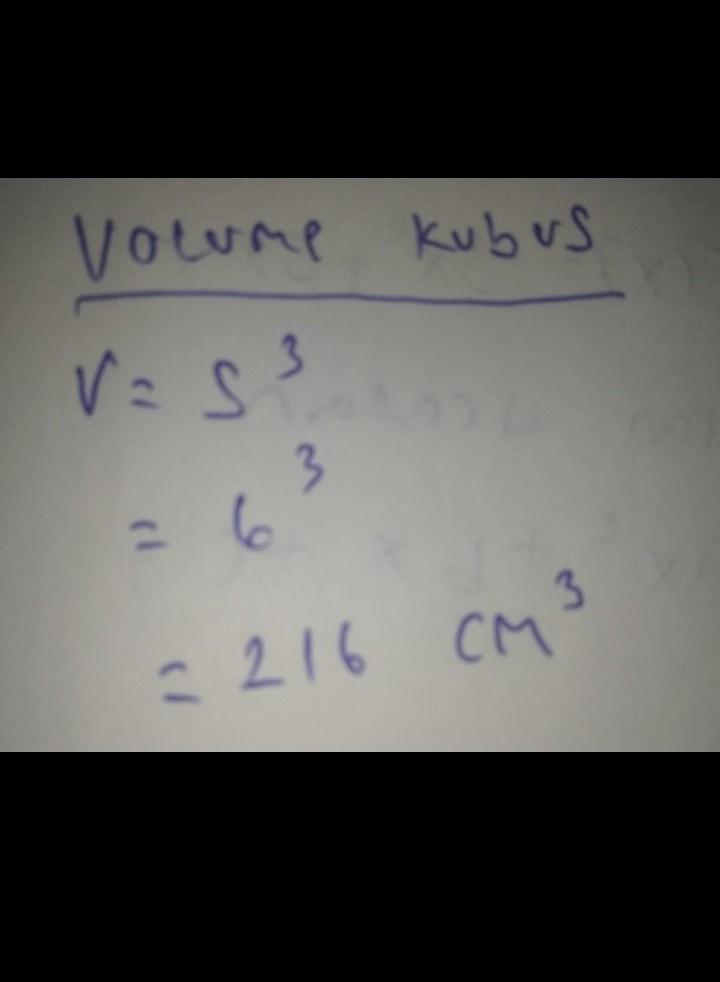 Volume kubus
V = S³
= 6³
= 216 cm³